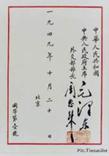 中華人民共和國
中央人民政府主席
毛澤東
外交部部長
周恩來
一九四九年十月二十日
北京
Pic:Tiexue.Net